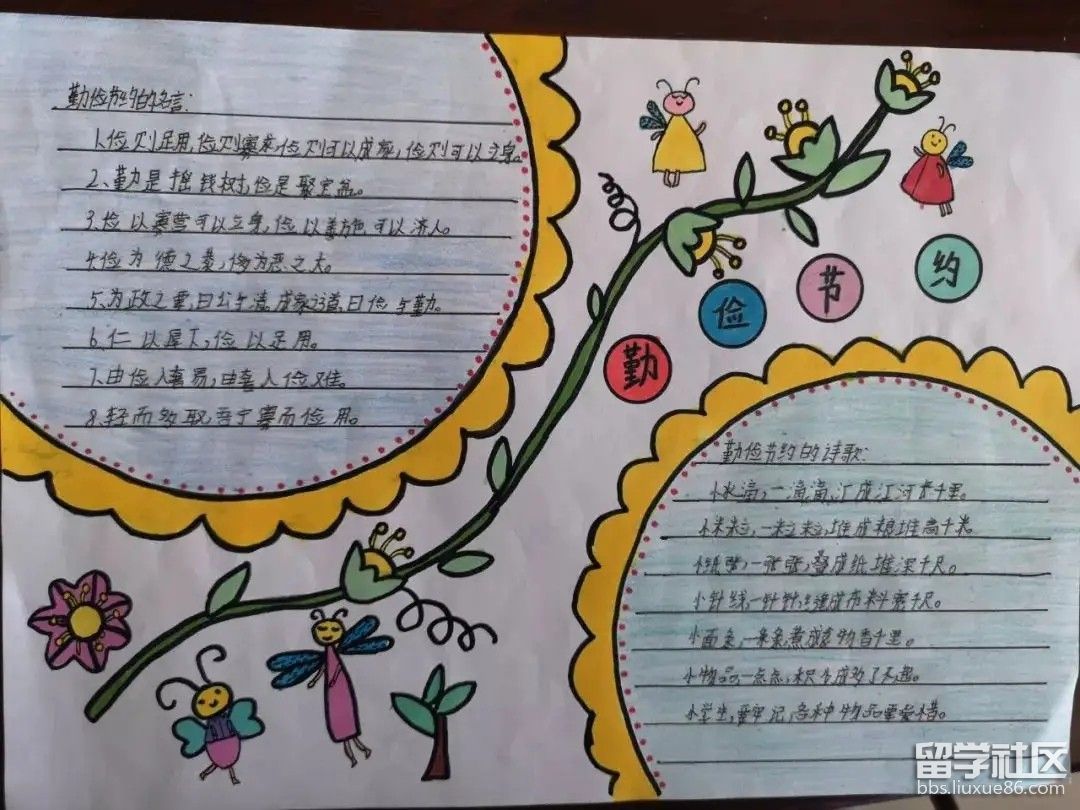 勤俭节约的名言:
1.俭则足用,俭则寡求,俭则可以成家,俭则可以立身。
2、勤是摇钱树,俭是聚宝盆。
3.俭以寡营可以立身,俭以善施可以济人。
4.俭为德之, 侈为恶之大。
5、为政之要,曰公与清,成家之道,曰俭与勤。
6、仁以厚下,俭以足用。
7.由俭入奢易,由奢入俭难。
8.轻而多取 寡而俭用。
勤
俭
节
约
勤俭节约的诗歌:
小水滴,一滴滴,汇成江河 千里。
小米粒,一粒粒,堆成粮堆高千米。
小纸张,一张张,叠成纸堆深千尺。
小针线,一针针,缝成布料宽千尺。
小面条,一条条,煮成食物香千里。
小物品,一点点,积少成多了不起。
小学生,要牢记,各种物品要爱惜。
留学社区
bbs.liuxue86.com